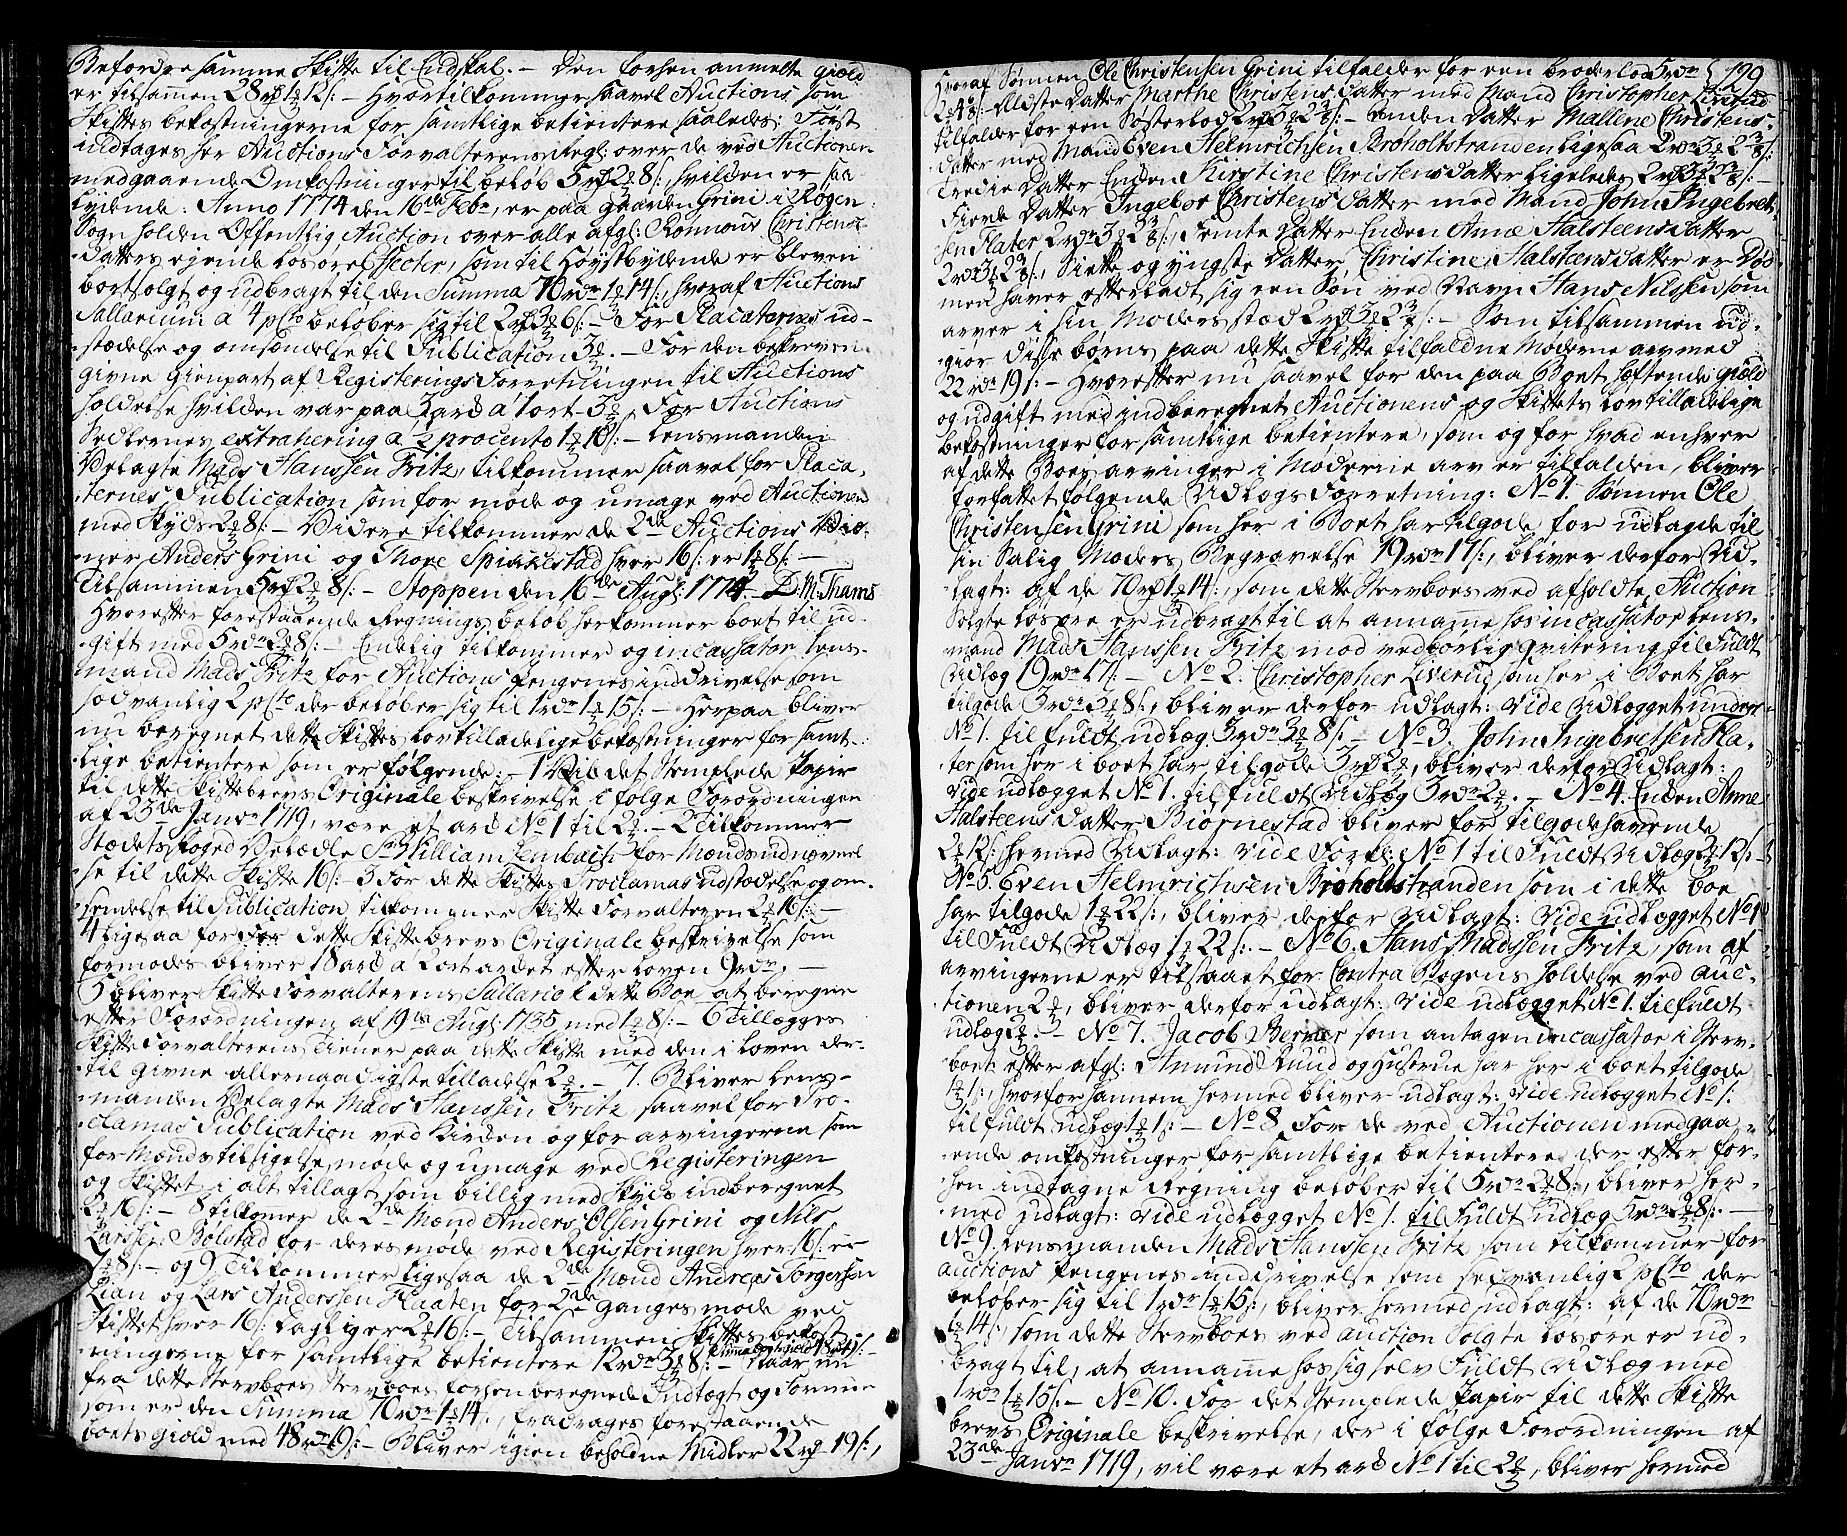 Befordre samme Skifte til Endskal. — Den forhen anmelte giæld
er tilsammen 28 rd 1 12 s: — Hvortilkommer saavel Auctions som
Skiftes bekostningerne for samtlige betientere saaledes: Først
indtages her Auctions Forvalterens Regl: over de ved Auctionen
medgaaende Omkostninger til beløb 5 rd 2 8 s: hvilken er saa-
lydende: Anno 1774 den 16de Febr, er paa gaarden Grini i Røgen
Sogn holden Offentlig Auction over alle afgl: Rønnous Christens-
datters ejende løsøre Effecter, som til Høystbydende er bleven
bortsolgt og udbragt til den Summa 70 rdr 1 14 s: hvoraf Auctions
Sallarium a 4 pCto beløber sig til 2 rd 3 6 s: — For Placaternes ud-
stædelse og omsændelse til Publication 3 . — For den beskreven
givne gienpart af Registerings Forretningen til Auctions
holdelse hvilken var paa 3 ard a 1 ort 3 , For Auctions
Sedlernes extrahering a ½ procento 1 10 s: — Lensmanden
Velagte Mads Hanssen Fritz, tilkommer saavel for Placa-
ternes Publication som for møde og umage ved Auctionen
med Skyds 2 8 s: — Videre tilkommer de 2de Auctions Vid-
ner Anders Grini og Thore Spickestad hver 16 s: er 1 8 s: —
Tilsammen 5 rd 2 8 s: — Hoppen den 16de Augl: 1774 D: M: Thams
Hvorefter forestaaende Regnings beløb herkommer boet til ud-
gift med 5 rdr 2 8 s: — Endelig tilkommer og incassator Lens-
mand Mads Fritz for Auctions pengenes inddrivelse som
sædvanlig 2 pCto der beløber sig til 1 rdr 1 15 s: — Herpaa bliver
nu beregnet dette Skiftes lovtilladelige bekostninger for samt-
lige betientere som er følgende: — 1 Vil det Stemplede Papir
til dette Skiftebrevs Originale beskrivelse i følge Forordningen
af 23de Janvr 1719, være et ard No 1 til 2 . — 2 Tilkommer
Stædets Foged Velædle Sr William Lembach for Mænds udnævnel-
se til dette Skifte 16 s: 3 For dette Skiftes Proclamas udstædelse og om-
sendelse til Publication tilkommer Skifte Forvalteren 2 16 s: —
4 Ligesaa for dette Skiftebrevs Originale beskrivelse som
formodes bliver 18 ard a 2 ort ardet efter loven 9 rdr. —
5 Bliver Skifte Forvalterens Sallario i dette Boe at beregne
efter Forordningen af 19de Augl: 1735 med 1 8 s: — 6 Tillægges
Skifte Forvalterens Tiener paa dette Skifte med den i loven der-
til givne allernaadigste tilladelse 2 . — 7. Bliver Lens-
manden Velagte Mads Hanssen Fritz saavel for Pro-
clamas Publication ved Kirken og for arvingerne som
for Mænds tilsigelse, møde og umage ved Registeringen
og Skiftet i alt tillagt som billig med Skyds indberegnet
2 16 s: — 8 tilkommer de 2de Mænd Anders Olsen Grini og Nils
Larsen Bølstad for deres møde ved Registeringen hver 16 s: er
1 8 s: — og 9 Tilkommer ligesaa de 2de Mænd Andreas Torgersen
Lian og Lars Anderssen Haaten for 2de ganges møde ved
Skiftet hver 16 s: daglig er 2 16 s: — Tilsammen Skiftes bekost-
ningerne for samtlige betientere 12 rdr 3 8 s: — Naar nu
fra dette Stervboes Stervboes forhen beregnede Indtægt og Formue
som er den Summa 70 rdr 1 14 s:, fradrages forestaaende
boets giæld med 48 rd 19 s: — Bliver igien beholdne Midler 22 rd 19 s:,
199
Hvoraf Sønnen Ole Christensen Grini tilfalder for een broderlod 5 rdr
2 4 s: — Eldste datter Marthe Christensdatter med Mand Christopher Liverud
tilfalder for een Søsterlod 2 rd 3 2 s: — Anden datter Mallene Christens-
datter med Mand Even Helmrichsen Brøholtstranden ligesaa 2 rdr 3 2 s:
Tredie datter Enken Kirstine Christensdatter ligeledes 2 rd 3 2 s: —
Fierde datter Ingebor Christensdatter med Mand John Ingebret-
sen Flater 2 rdr 3 2 s:, Femte datter Enken Anne Halsteensdatter
2 rdr 3 2 s:, Siette og yngste datter Christine Halstensdatter er død
men haver efterladt sig een Søn ved Navn Hans Nilsen som
arver i sin Moders stæd 2 rd 3 2 s: — Som tilsammen ud-
giør disse børns paa dette Skifte tilfaldne Møderne arv med
22 rdr 19 s: — Hvorefter nu saavel for den paa Boet heftende giæld
og udgift med indberegnet Auctionens og Skiftets lovtilladelige
bekostninger for samtlige betientere, som og for hvad enhver
af dette Boes arvinger i Møderne arv er tilfalden, bliver
forfattet følgende Udlogs Forretning: No 1. Sønnen Ole
Christensen Grini som her i Boet har tilgode for udlagde til
sin Salig Moders Begravelse 19 rdr 17 s:, bliver derfor Ud-
lagt: af de 70 rd 1 14 s:, som dette Stervboes ved afholdte Auction
Solgte løsøre er udbragt til at annamme hos incassator Lens-
mand Mads Hanssen Fritz mod vedbørlig qvitering til Fuldt
Udlæg 19 rdr 17 s: — No 2. Christopher Liverud som her i Boet har
tilgode 3 rdr 3 8 s:, bliver derfor udlagt: vide Udlægget under
No 1. til fuldt udlæg 3 rdr 3 8 s: — No 3 John Ingebretsen Fla-
ter som her i boet har tilgode 3 rd 2 , bliver derfor Udlagt:
Vide udlægget No 1. til fuldt Udlæg 3 rdr 2 . — No 4. Enken Anne
Halsteensdatter Biørnestad bliver for tilgodehavende
2 12 s: hermed Udlagt: vide Forkl: No 1 til Fuldt Udlæg 2 12 s: —
No 5. Even Helmrichsen Brøholtstranden som i dette boe
har tilgode 1 22 s:, bliver derfor Udlagt: vide udlægget No 1
til Fuldt Udlæg 1 22 s: — No 6. Hans Madssen Fritz, som af
arvingerne er tilstaaet for Contra Bogens holdelse ved Auc-
tionen 2 , bliver derfor udlagt: vide udlægget No 1. til fuldt
udlæg 2 . — No 7. Jacob Berner som antagen incassator i Sterv-
boet efter afgl: Amund Ruud og Hustrue har her i boet tilgode
1 1 s:, hvorfor hannem hermed bliver udlagt: vide udlægget No 1.
til fuldt udlæg 1 1 s: — No 8 For de ved Auctionen medgaa-
ende omkostninger for samtlige betientere der efter for-
hen indtagne Regning beløber til 5 rdr 2 8 s:, bliver her-
med udlagt: vide udlægget No 1. til Fuldt udlæg 5 rdr 2 8 s: —
No 9. Lensmanden Mads Hanssen Fritz som tilkommer for
auctions pengenes inddrivelse som sædvanlig 2 pCto der
beløber sig til 1 rdr 1 15 s:, bliver hermed udlagt: af de 70 rdr
1 14 s:, som dette Stervboes ved auction Solgte løsøre er ud-
bragt til, at annamme hos sig selv Fuldt Udlæg med
1 rdr 1 15 s: — No 10. For det Stemplede Papir til dette Skifte
brevs Originale beskrivelse, der i følge Forordningen af
23de Janvr 1719, vil være et ard No 1 til 2 , bliver hermed